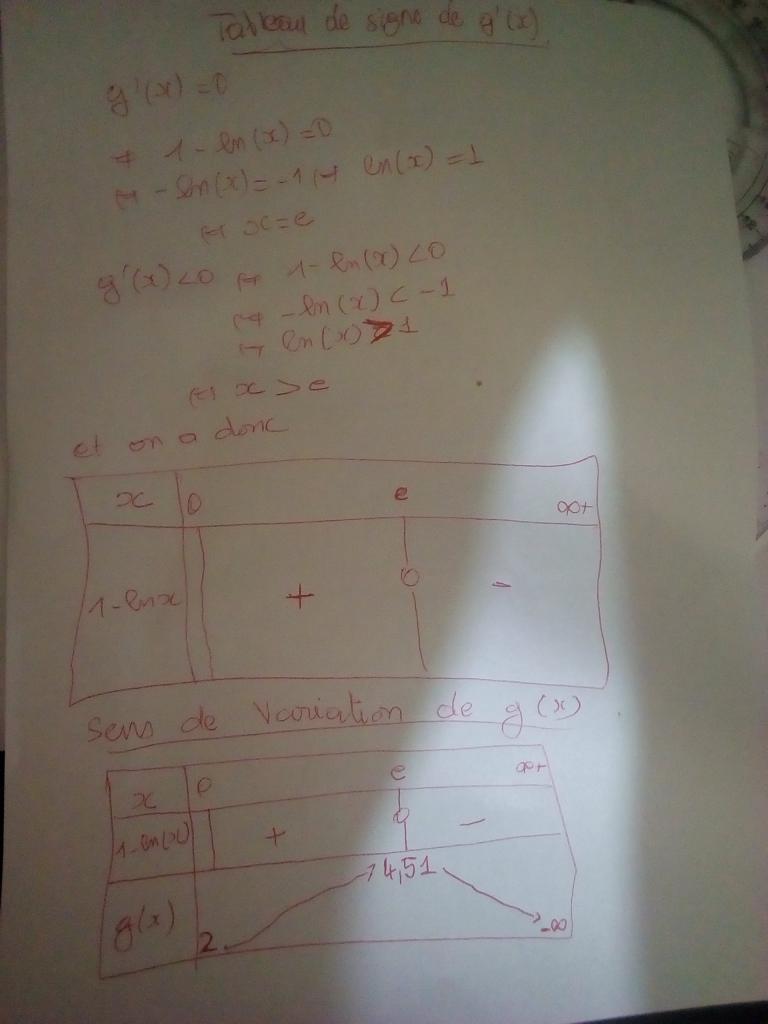 Tableau de signe de g'(x)
g'(x) = 0
⇔ 1 - ln(x) = 0
⇔ - ln(x) = -1 ⇔ ln(x) = 1
⇔ x = e
g'(x) < 0 ⇔ 1 - ln(x) < 0
⇔ - ln(x) < -1
⇔ ln(x) > 1
⇔ x > e
et on a donc
x 0 e ∞+
1 - lnx + 0 -
Sens de variation de g(x)
x 0 e ∞+
1 - ln(x) + 0 -
4,51
g(x)
2 -∞